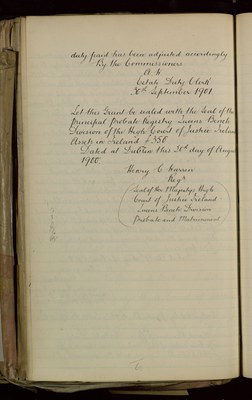 duty paid has been adjusted accordingly
By the Commissioners
A K
Estate Duty Clerk
30th September 1901
Let this Grant be sealed with the Seal of the
Principal Probate Registry Queens Bench
Division of the High Court of Justice Ireland
Assets in Ireland £350
Dated at Dublin this 20th day of August
1900
Henry C Warren
Regr
Seal of Her Majestys High
Court of Justice Ireland
Queens Bench Division
Probate and Matrimonial